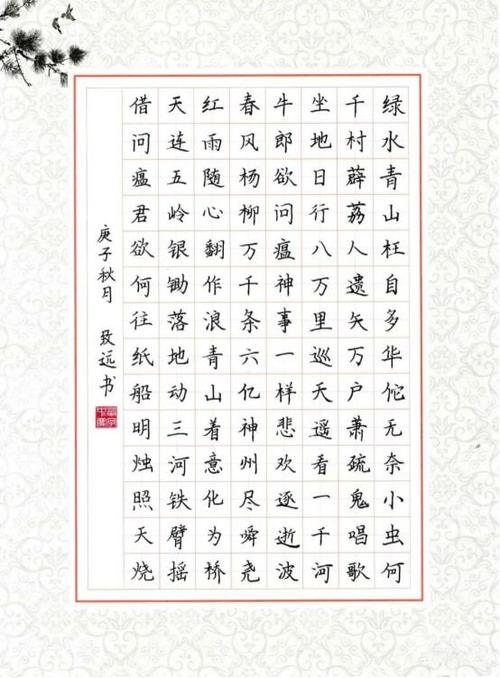 绿水青山枉自多华佗无奈小虫何
千村薜荔人遗矢万户萧疏鬼唱歌
坐地日行八万里巡天遥看一千河
牛郎欲问瘟神事一样悲欢逐逝波
春风杨柳万千条六亿神州尽舜尧
红雨随心翻作浪青山着意化为桥
天连五岭银锄落地动三河铁臂摇
借问瘟君欲何往纸船明烛照天烧
庚子秋月 致远书